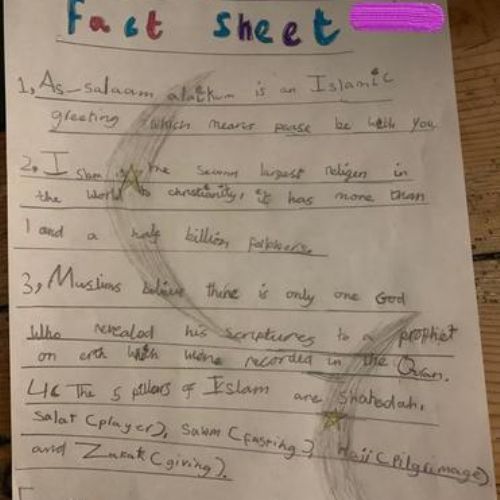 Fact Sheet
1, As-salaam alaikum is an Islamic
greeting which means pease be with you
2, Islam is the second largest religen in
the world to christianity, it has more than
1 and a half billion followers.
3, Muslims believe there is only one God
who revealed his scriptures to a prophet
on erth were recorded in the Quran.
4, The 5 pillars of Islam are Shahadah,
Salat (player), Sawm (fasting), Hajj (Pilgrimage)
and Zakat (giving).